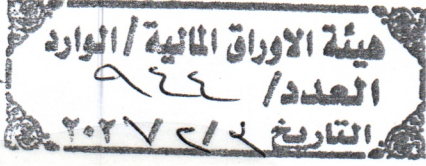 هيئة الاوراق المالية / الوارد
العدد / ٩٤٤
التاريخ